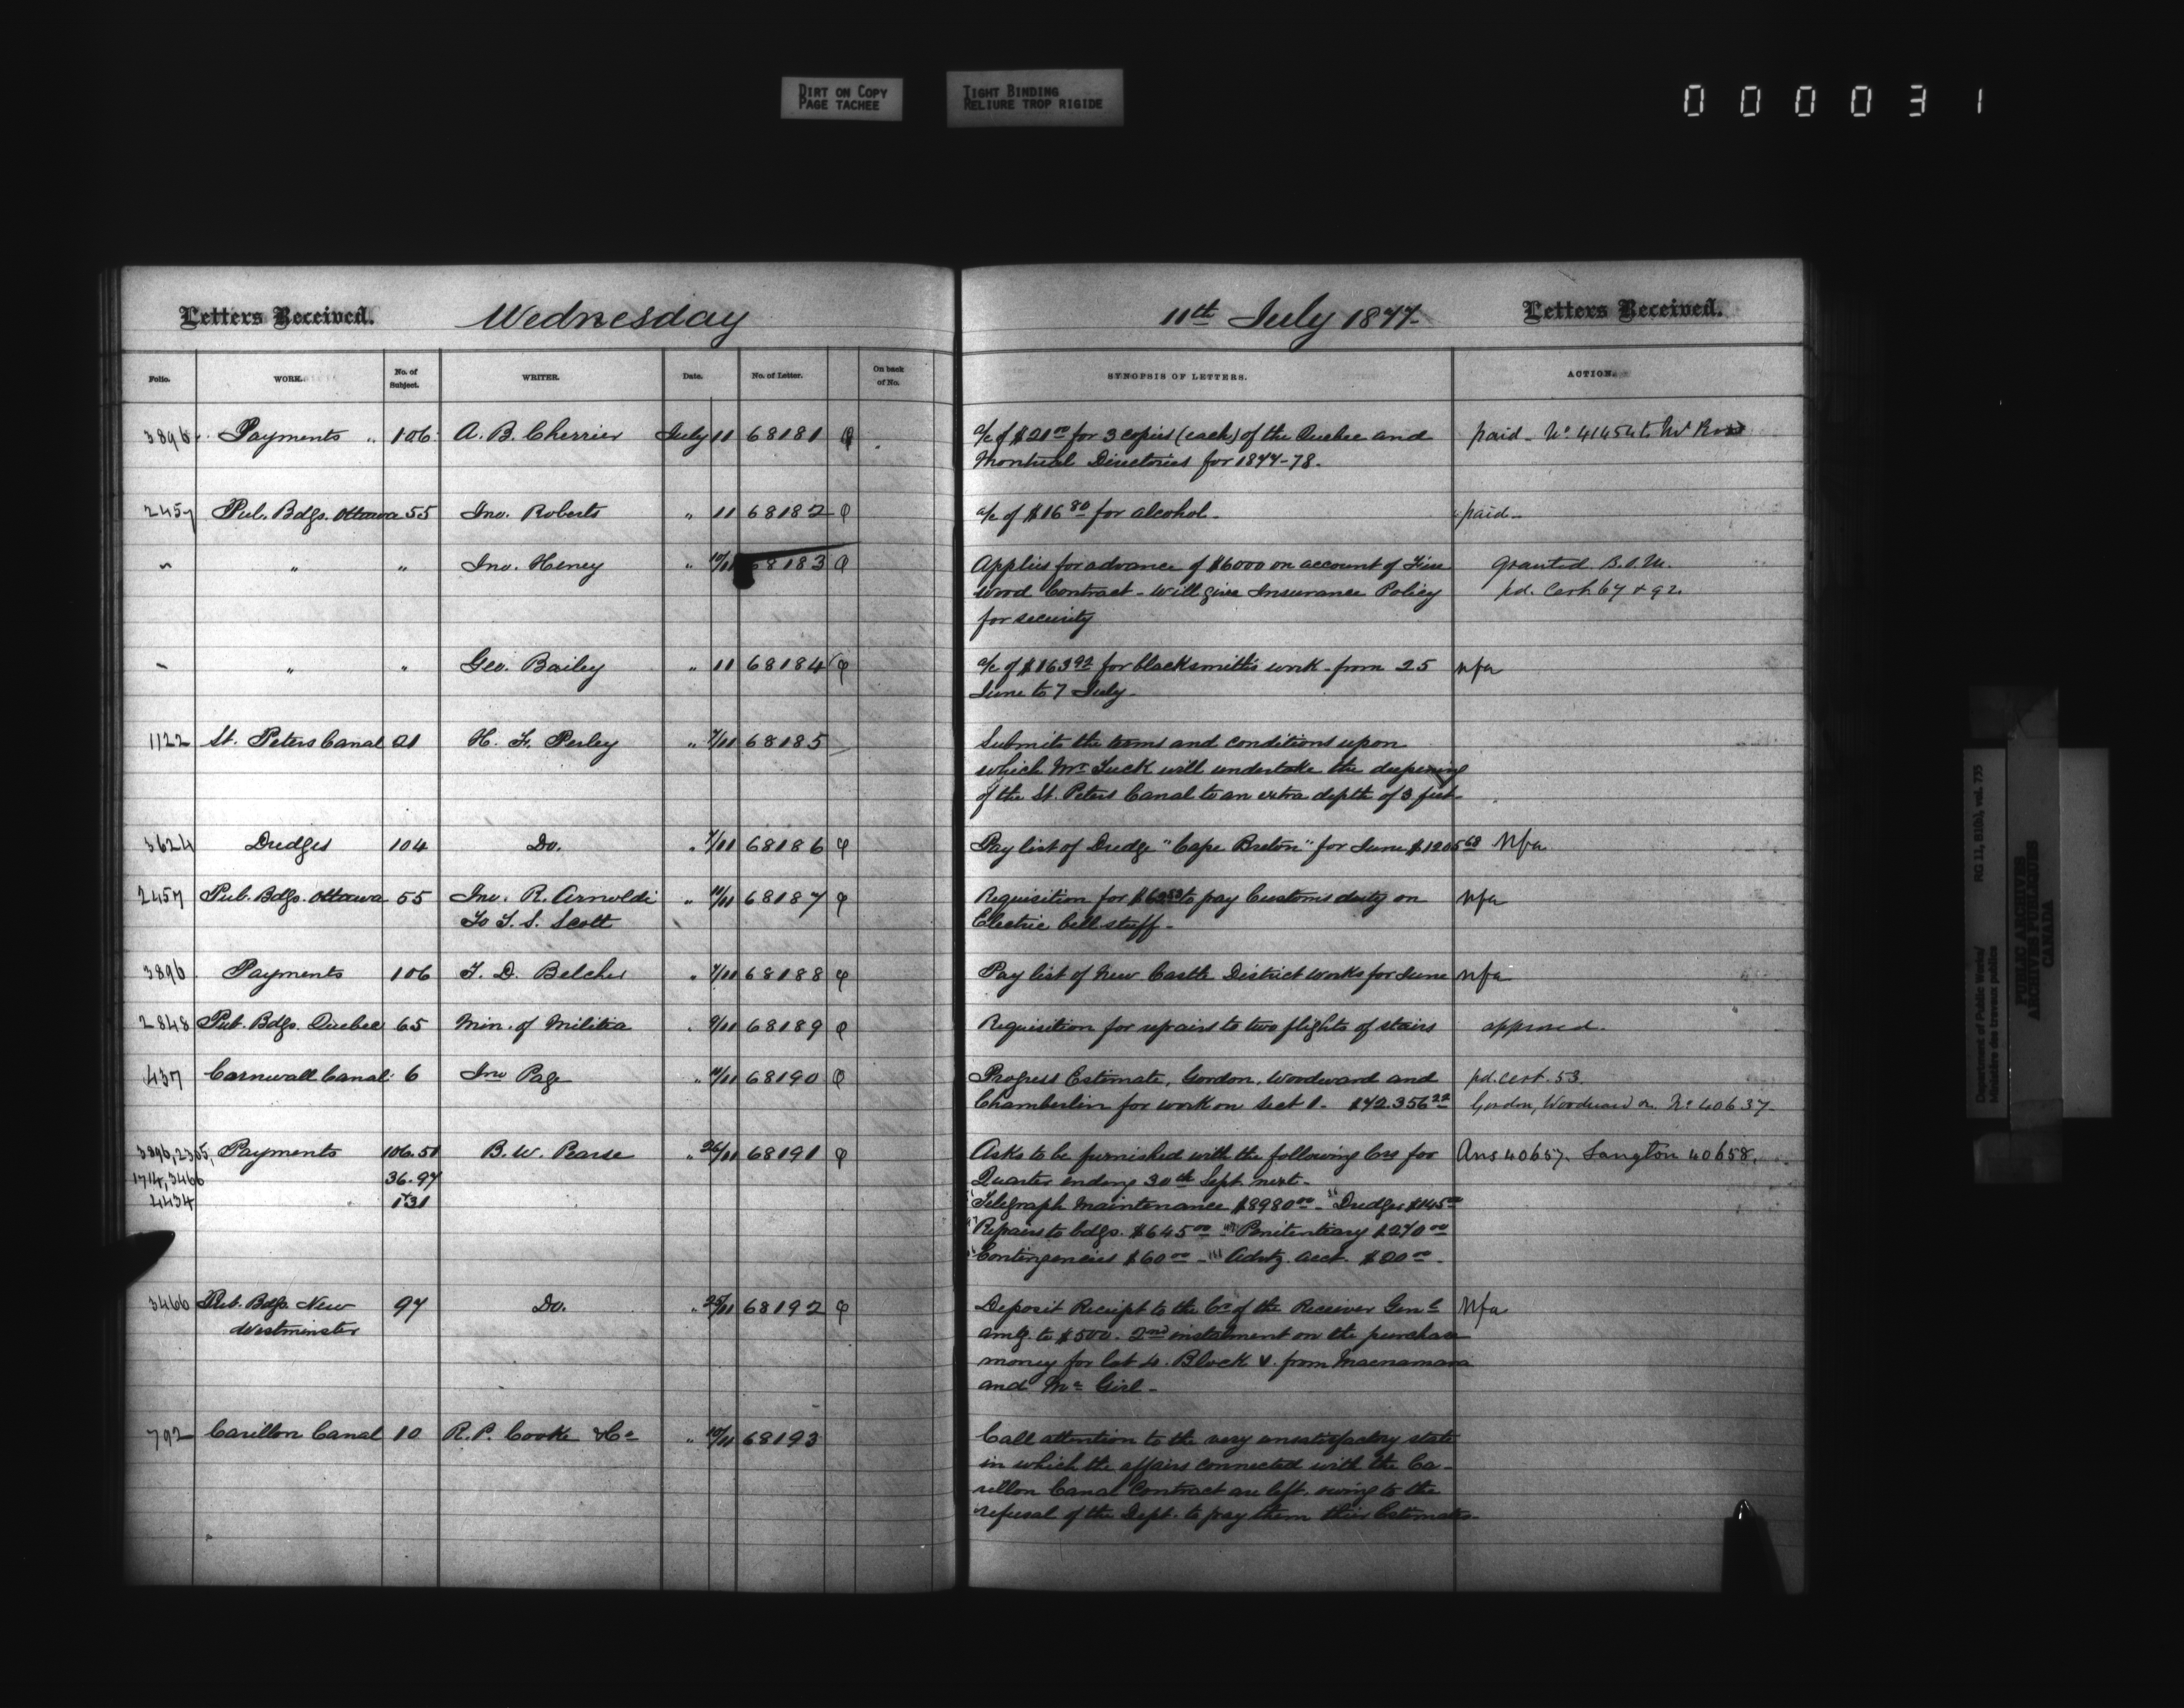 DIRT ON COPY
PAGE TACHEE
TIGHT BINDING
RELIURE TROP RIGIDE
000031
Letters Received. Wednesday 11th July 1877. Letters Received.
Folio. WORK. No. of Subject. WRITER. Date. No. of Letter. On back of No. SYNOPSIS OF LETTERS. ACTION.
3896 Payments " 106 A. B. Cherrier July 11 68181 φ a/c of $21 00 for 3 copies (each) of the Quebec and paid - No 41454 to Mr Ross
Montreal Directories for 1877-78.
2457 Pub. Bdgs. Ottawa 55 Jno. Roberts " 11 68182 φ a/c of $16 80 for alcohol. paid -
" " " Jno. Heney " 10/11 68183 φ Applies for advance of $6000 on account of Fire granted B.O.M.
wood Contract - Will give Insurance Policy pd. Cert. 67 & 92.
for security
" " " Geo. Bailey " 11 68184 φ a/c of $163 92 for blacksmith's work - from 25 nfa
June to 7 July -
1122 St. Peters Canal 21 H. F. Perley " 7/11 68185 Submits the terms and conditions upon
which Mr Tuck will undertake the deepening
of the St. Peters Canal to an extra depth of 3 feet -
3624 Dredges 104 Do. " 7/11 68186 φ Pay list of Dredge "Cape Breton" for June $1205 68 Nfa
2457 Pub. Bdgs. Ottawa 55 Jno. R. Arnoldi " 11/11 68187 φ Requisition for to pay Customs duty on Nfa
To T. S. Scott Electric bell stuff -
3896 Payments 106 T. D. Belcher " 7/11 68188 φ Pay list of New Castle District works for June nfa
2848 Pub. Bdgs. Quebec 65 Min. of Militia " 9/11 68189 φ Requisition for repairs to two flights of stairs approved.
437 Cornwall Canal 6 Jno Page " 10/11 68190 φ Progress Estimate, Gordon, Woodward and pd. cert. 53.
Chamberlin for work on Sect 1. $42.356 22 Gordon, Woodward No 40637
3896, 2305, Payments 106.51 B. W. Pearse " 26/11 68191 φ Asks to be furnished with the following Crs for Ans 40657. Langton 40658.
1714, 3466 36.97 Quarter ending 30th Sept. next -
4434 131 Telegraph Maintenance $8980 00 - Dredges $145 00
Repairs to bdgs. $645 00 Penitentiary $270 00
Contingencies $60 00 - Advtg. acct. $20 00 -
3466 Pub. Bdgs. New 97 Do. " 25/11 68192 φ Deposit Receipt to the Cr of the Receiver Genl Nfa
Westminster amtg. to $500. 2nd instalment on the purchase
money for lot 4. Block V. from Macnamara
and Mc Girl -
792 Carillon Canal 10 R. P. Cooke & Co " 10/11 68193 Call attention to the very unsatisfactory state
in which the affairs connected with the Ca-
rillon Canal Contract are left, owing to the
refusal of the Dept. to pay them their Estimates -
Department of Public Works/
Ministère des travaux publics
RG 11, B1(b), vol. 735
PUBLIC ARCHIVES
ARCHIVES PUBLIQUES
CANADA